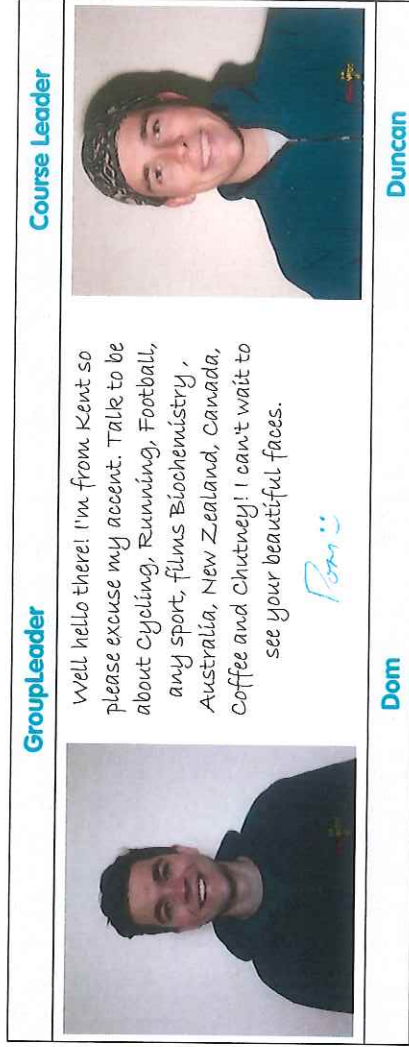 GroupLeader
Course Leader
Well hello there! I'm from Kent so
please excuse my accent. Talk to be
about Cycling, Running, Football,
any sport, films Biochemistry,
Australia, New Zealand, Canada,
Coffee and Chutney! I can't wait to
see your beautiful faces.
Dom :)
Dom
Duncan